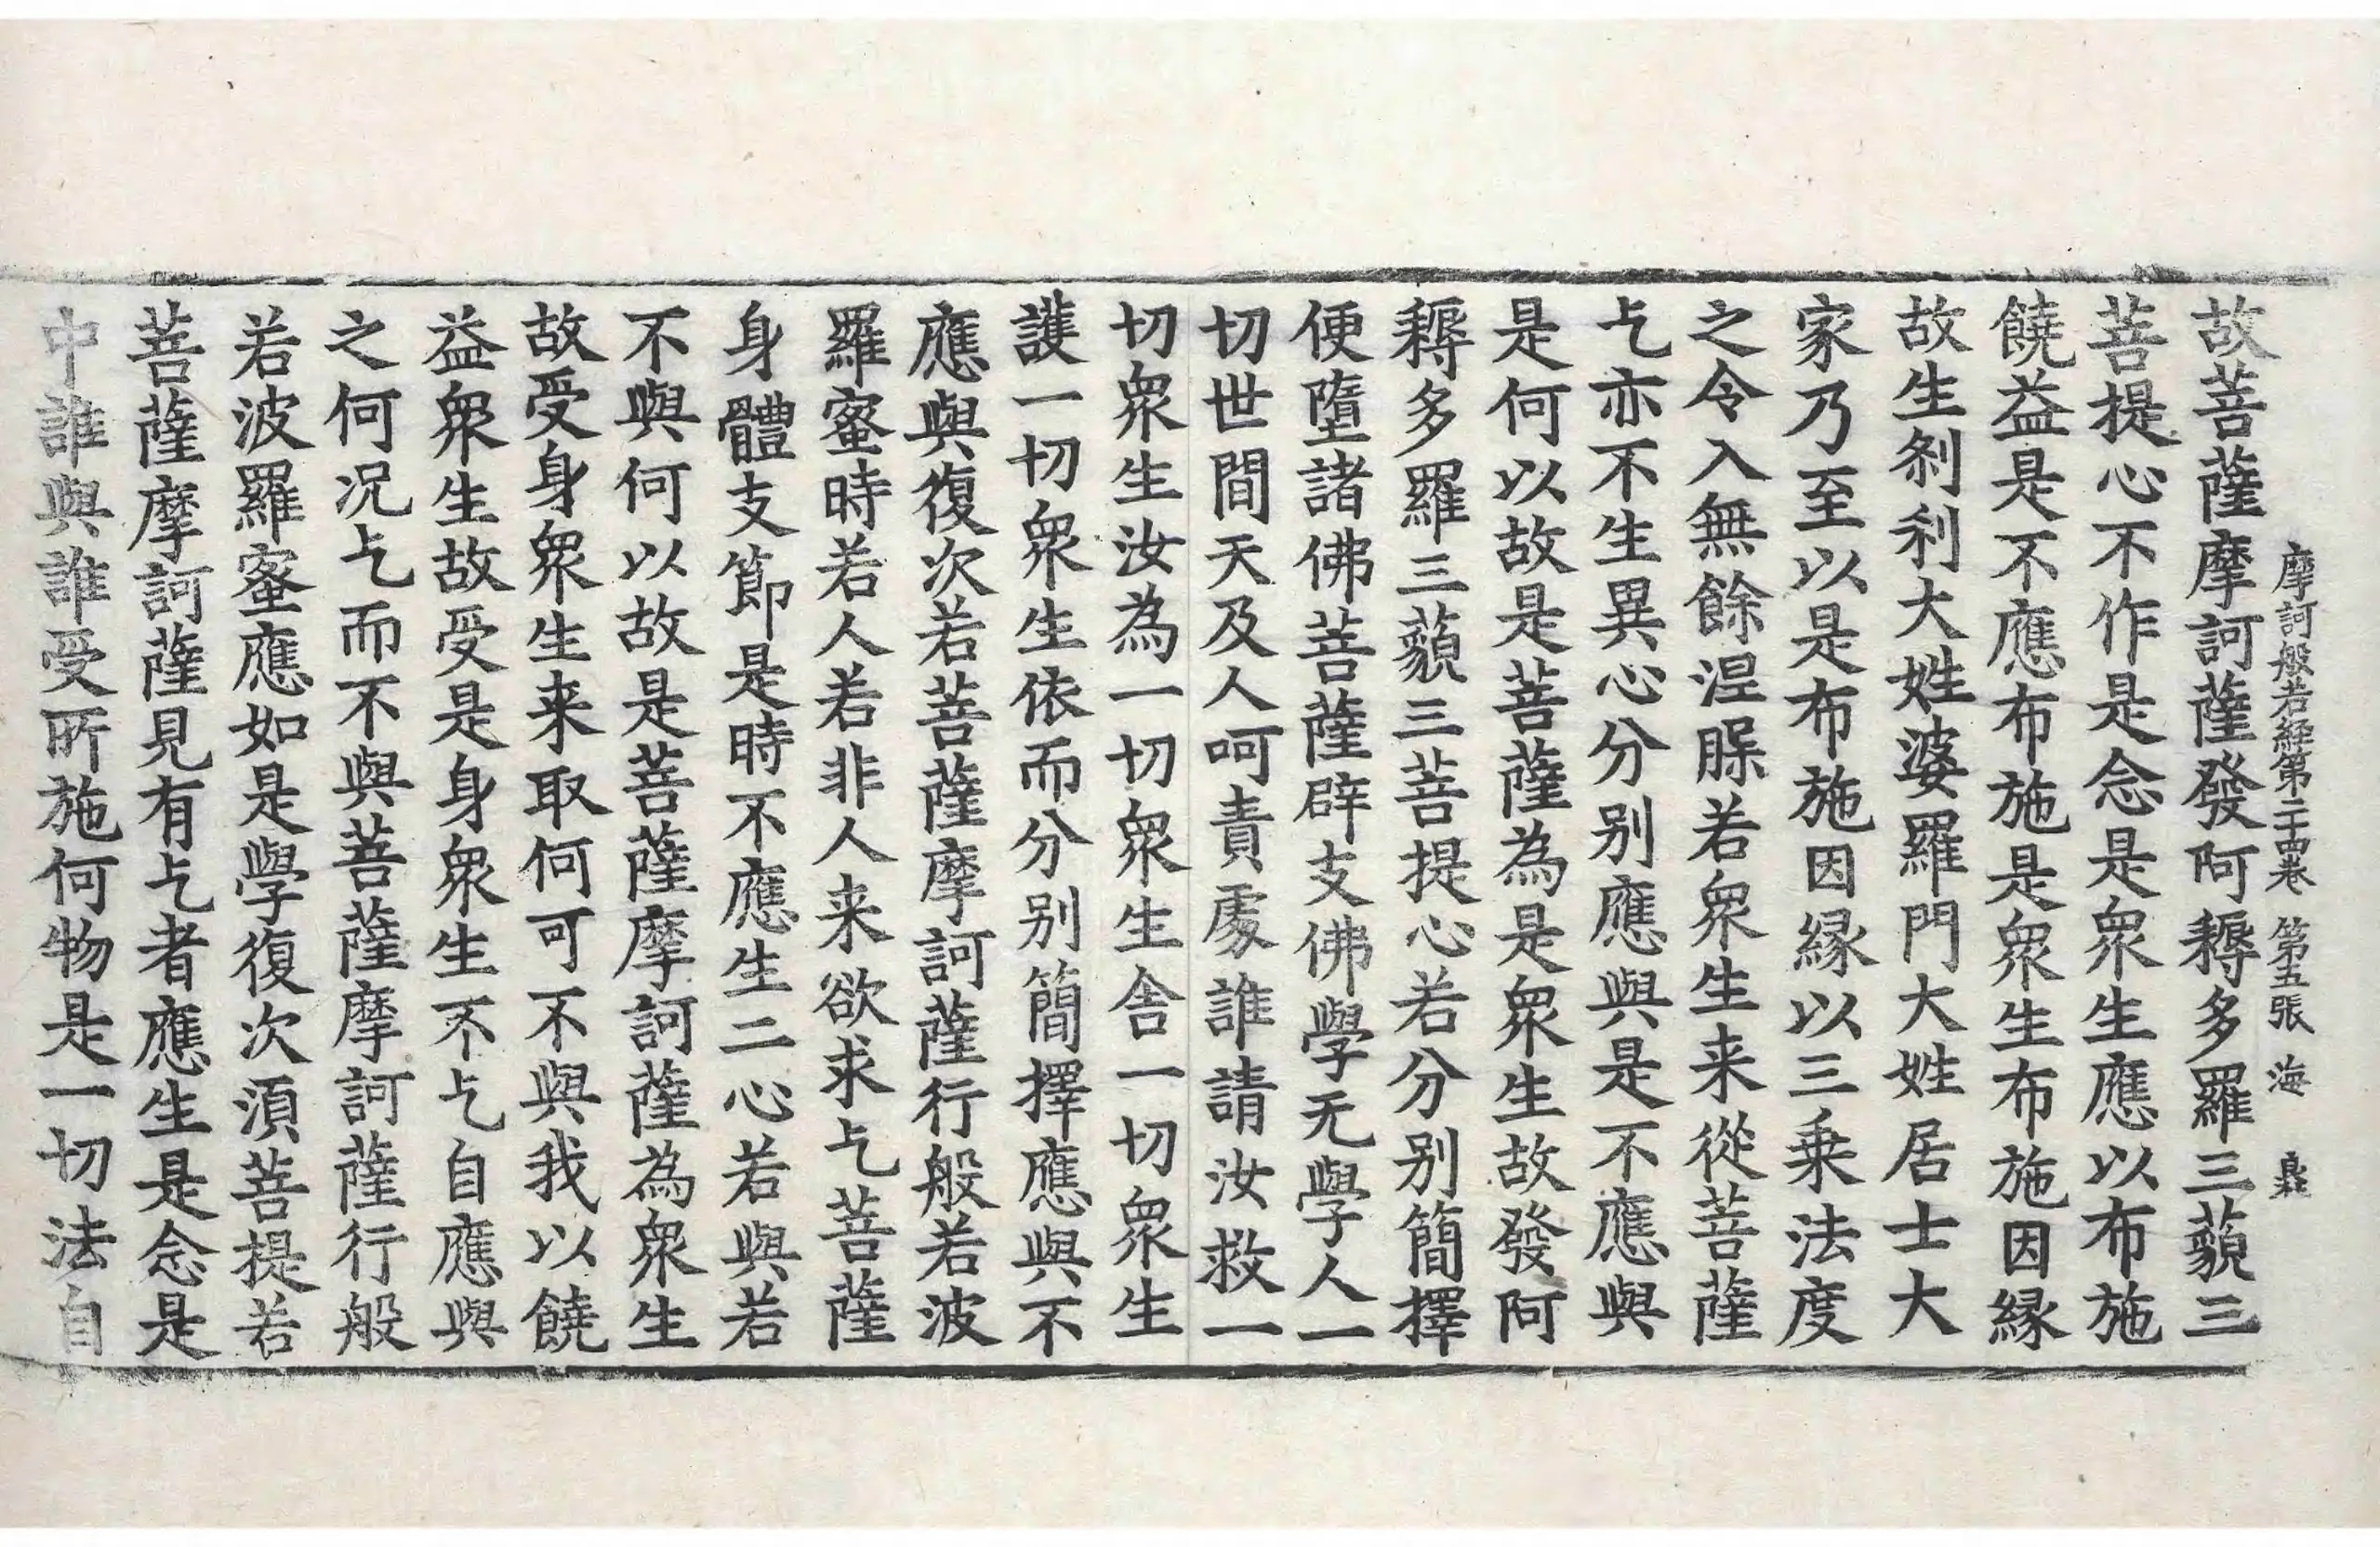 摩訶般若經第二十四卷 第五張 海
故菩薩摩訶薩發阿耨多羅三藐三
菩提心不作是念是衆生應以布施
饒益是不應布施是衆生布施因縁
故生刹利大姓婆羅門大姓居士大
家乃至以是布施因縁以三乗法度
之令入無餘涅腂若衆生来從菩薩
乞亦不生異心分别應與是不應與
是何以故是菩薩為是衆生故發阿
耨多羅三藐三菩提心若分别簡擇
便墮諸佛菩薩辟支佛學无學人一
切世間天及人呵責䖏誰請汝救一
切衆生汝為一切衆生舎一切衆生
護一切衆生依而分别簡擇應與不
應與復次若菩薩摩訶薩行般若波
羅蜜時若人若非人来欲求乞菩薩
身體支節是時不應生二心若與若
不與何以故是菩薩摩訶薩為衆生
故受身衆生来取何可不與我以饒
益衆生故受是身衆生不乞自應與
之何况乞而不與菩薩摩訶薩行般
若波羅蜜應如是學復次須菩提若
菩薩摩訶薩見有乞者應生是念是
中誰與誰受所施何物是一切法自